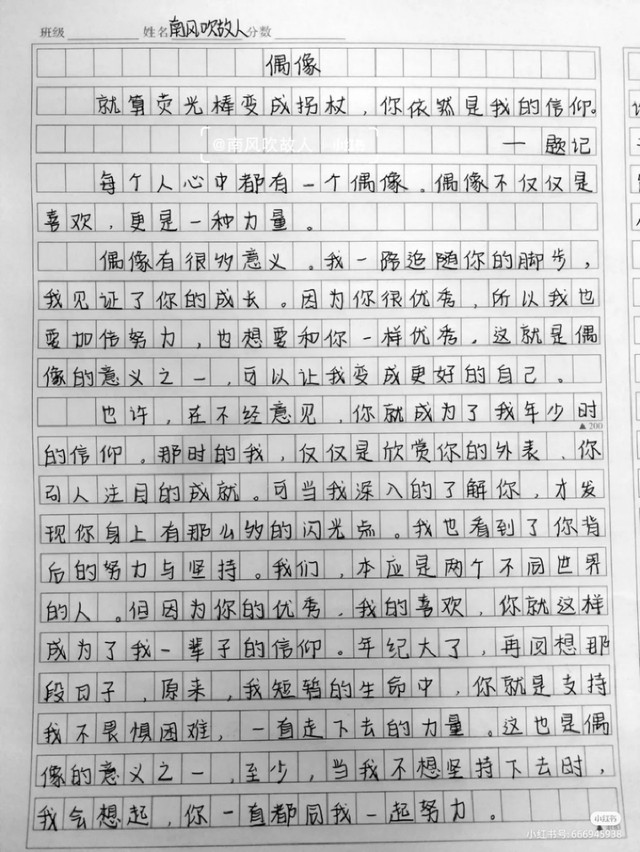 班级 姓名 南风吹故人 分数
偶像
就算荧光棒变成拐杖,你依然是我的信仰。
@南风吹故人
一 题记
每个人心中都有一个偶像。偶像不仅仅是
喜欢,更是一种力量。
偶像有很多意义。我一路追随你的脚步,
我见证了你的成长。因为你很优秀,所以我也
要加倍努力,也想要和你一样优秀。这就是偶
像的意义之一,可以让我变成更好的自己。
也许,在不经意见,你就成为了我年少时
▲200
的信仰。那时的我,仅仅是欣赏你的外表,你
引人注目的成就。可当我深入的了解你,才发
现你身上有那么多的闪光点。我也看到了你背
后的努力与坚持。我们,本应是两个不同世界
的人。但因为你的优秀,我的喜欢,你就这样
成为了我一辈子的信仰。年纪大了,再回想那
段日子,原来,我短暂的生命中,你就是支持
我不畏惧困难,一直走下去的力量。这也是偶
像的意义之一,至少,当我不想坚持下去时,
我会想起,你一直都同我一起努力。
小红书
小红书号:666945938